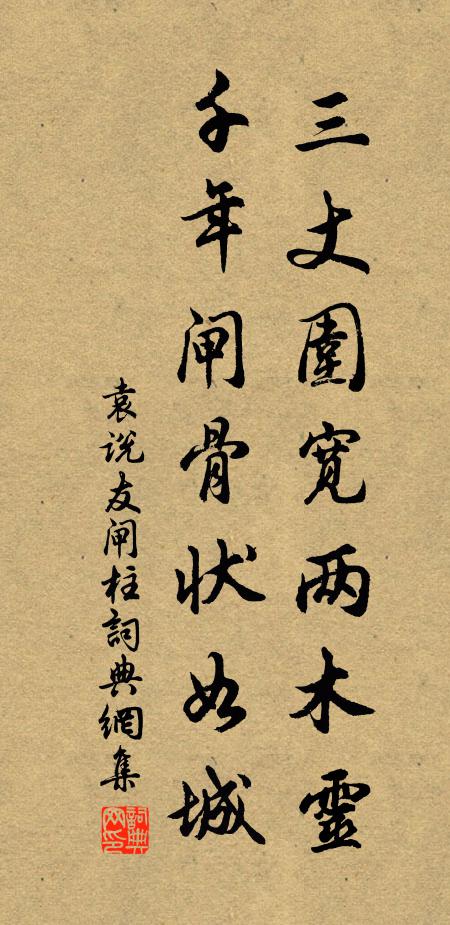 三丈圍寬两木靈
千年闸骨状如城
袁说友闸柱詞典網集
詞典网印